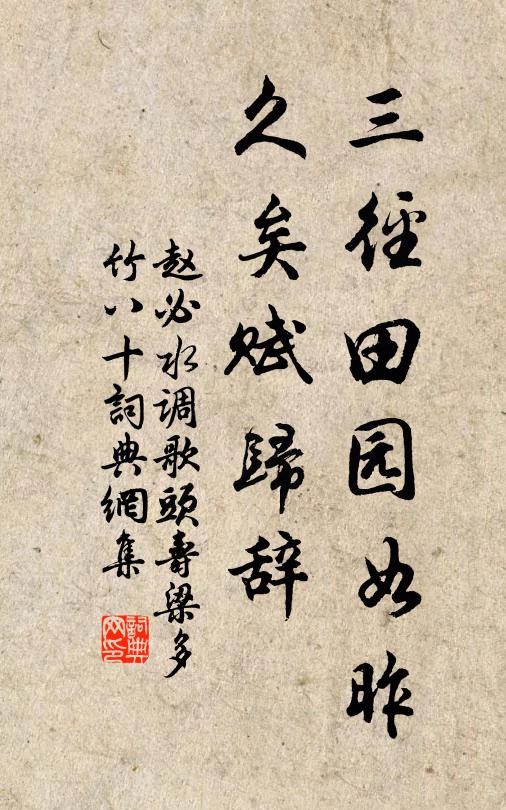 三徑田园如昨
久矣赋歸辞
赵必水调歌頭寿梁多
竹八十詞典網集
詞典网印